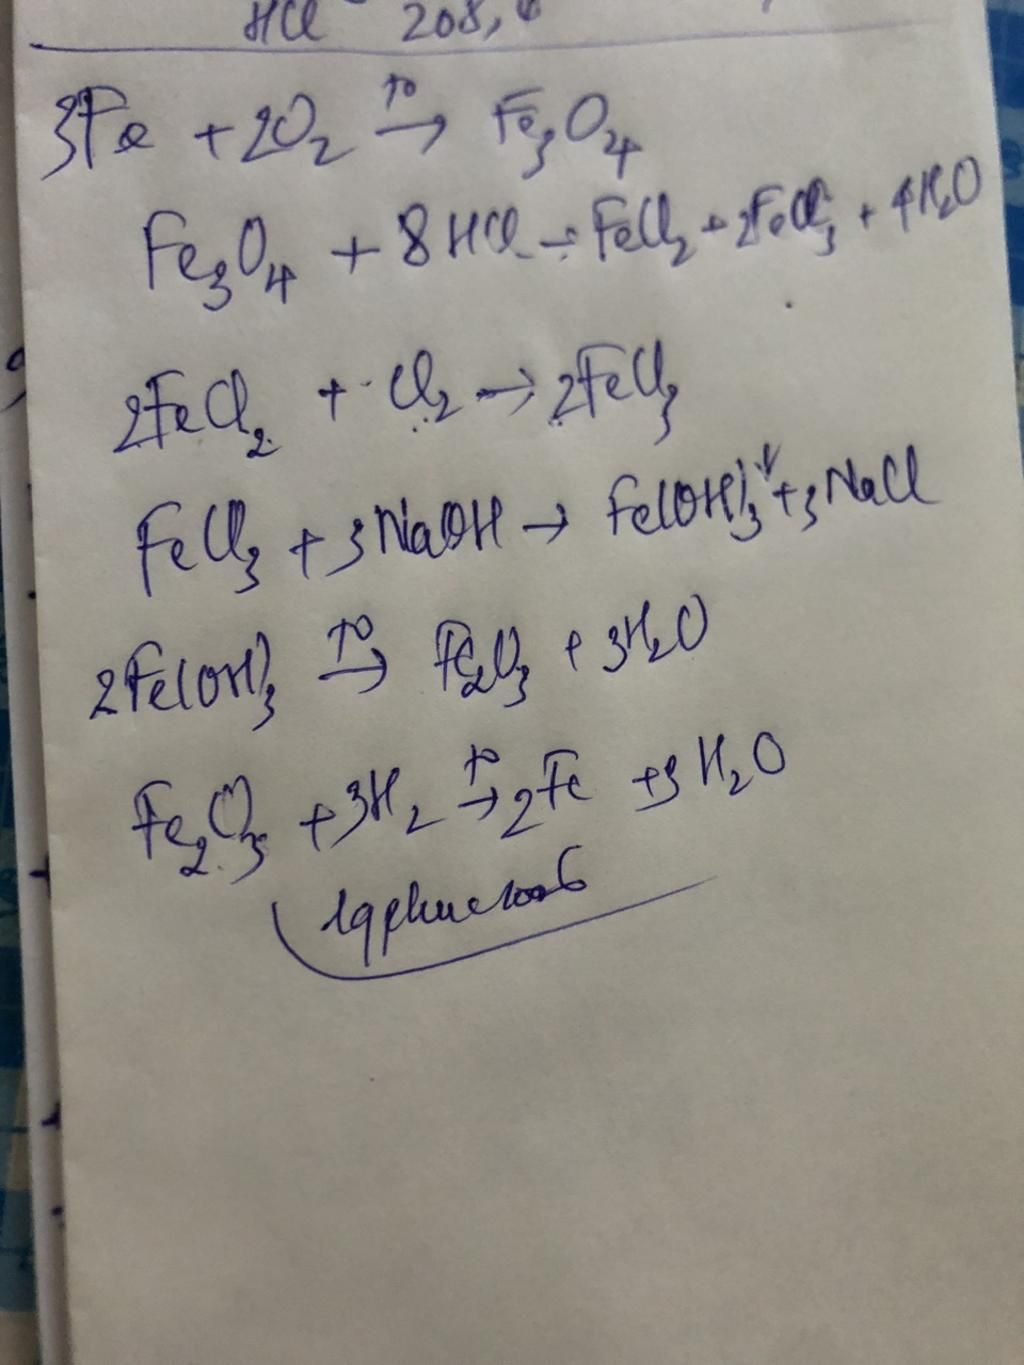 HCl 208,
3Fe + 2O₂ →(t⁰) Fe₃O₄
Fe₃O₄ + 8HCl → FeCl₂ + 2FeCl₃ + 4H₂O
2FeCl₂ + Cl₂ → 2FeCl₃
FeCl₃ + 3NaOH → Fe(OH)₃↓ + 3NaCl
2Fe(OH)₃ →(t⁰) Fe₂O₃ + 3H₂O
Fe₂O₃ + 3H₂ →(t⁰) 2Fe + 3H₂O